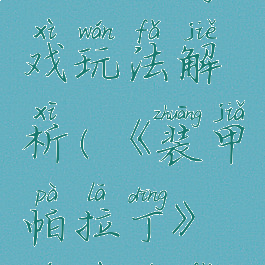 xì wán fǎ jiě
戏玩法解
xī zhuāng jiǎ
析(《装甲
pà lā dīng
帕拉丁》